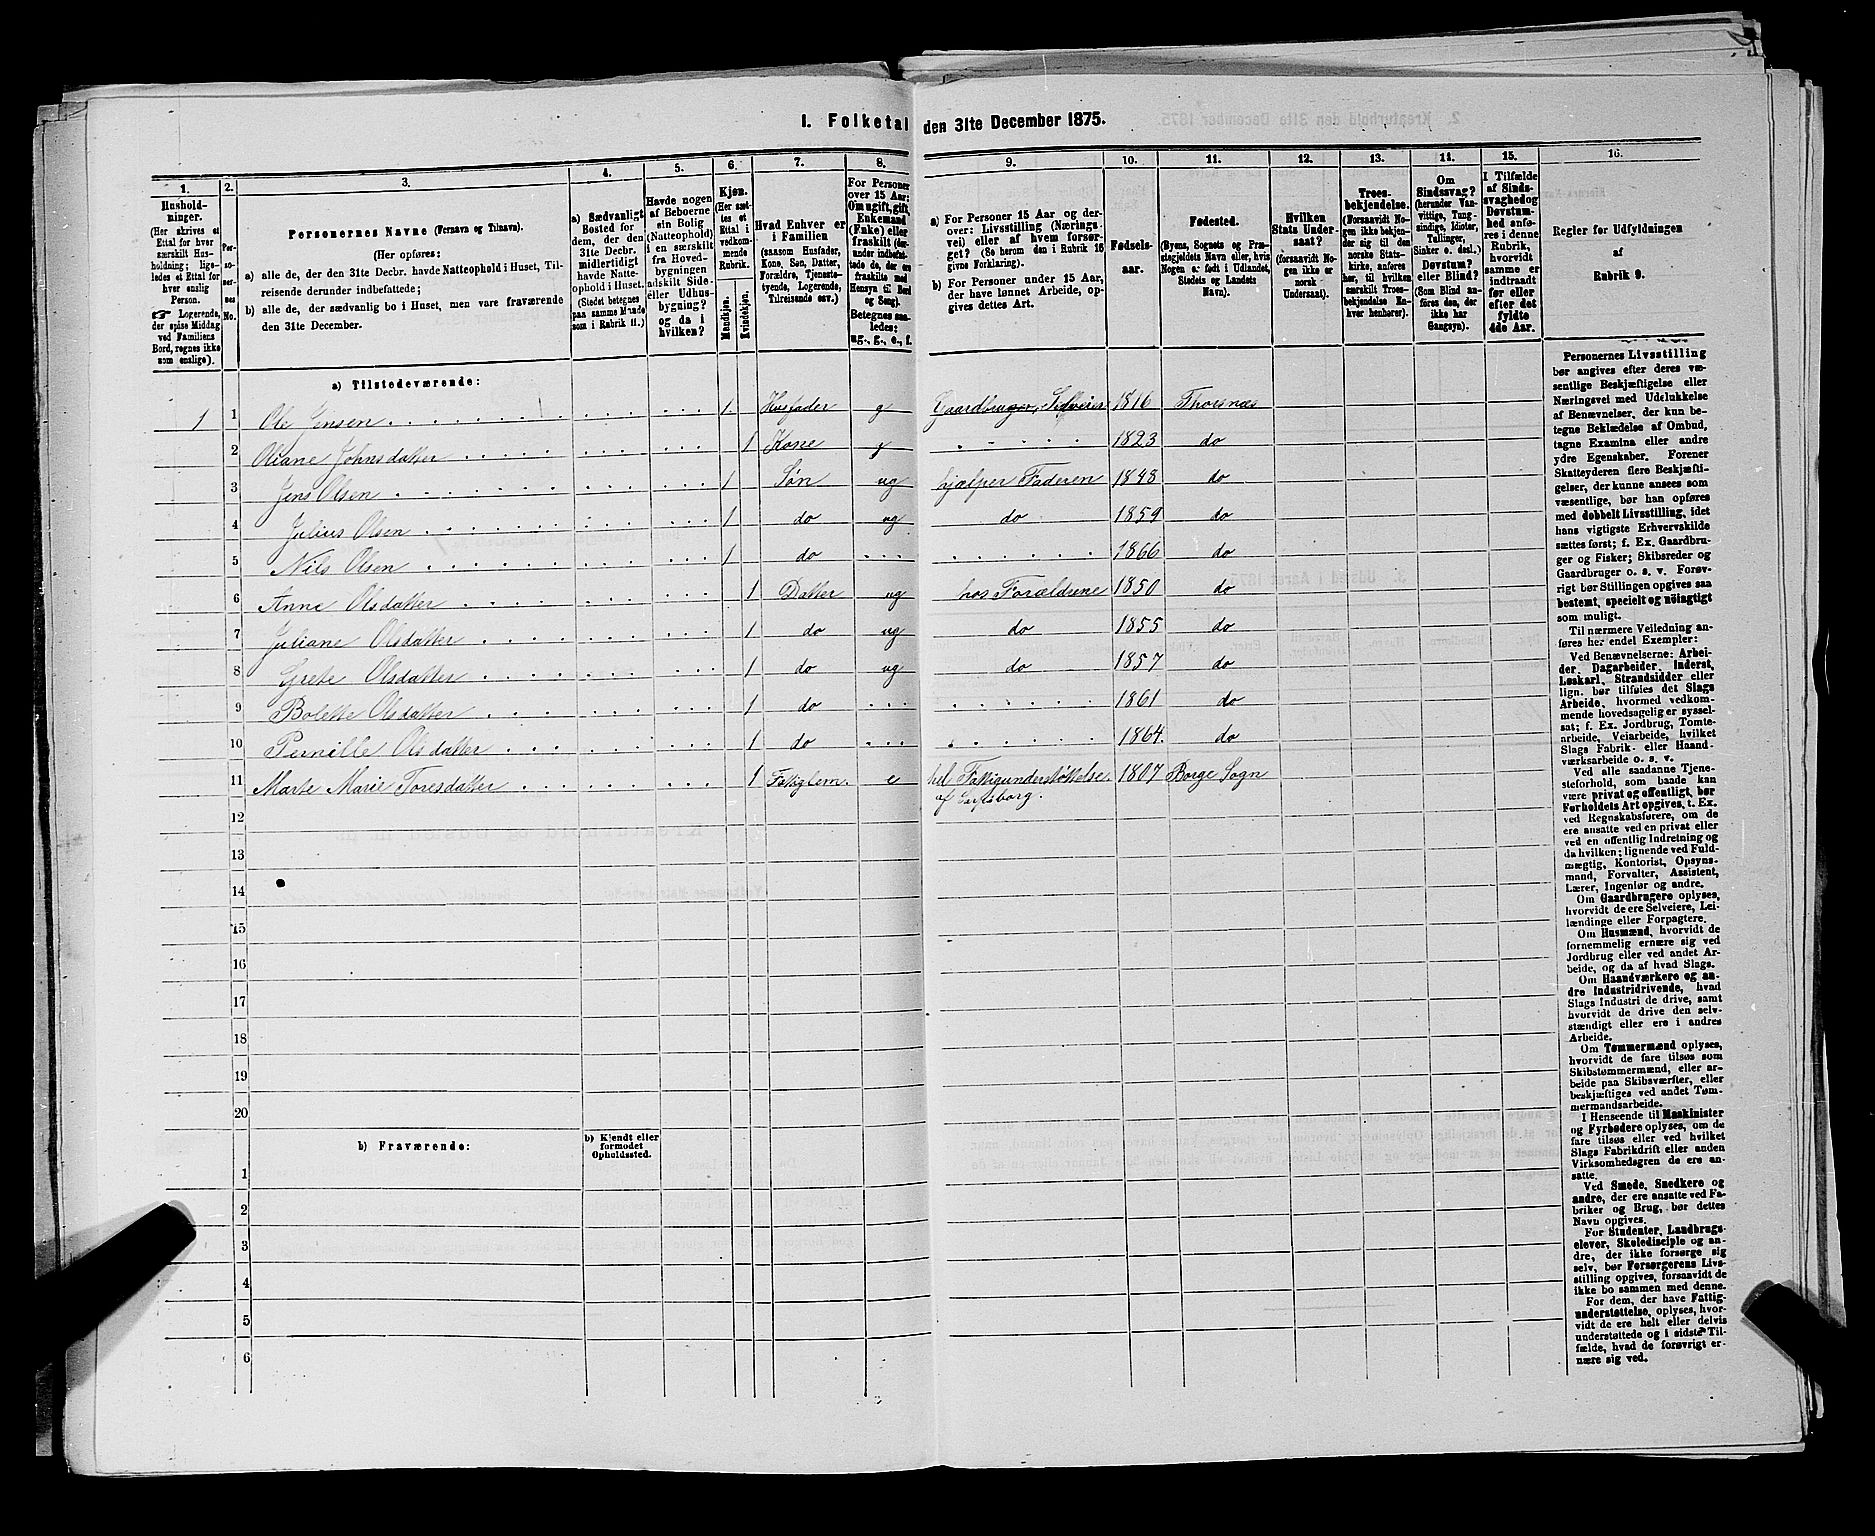 I. Folketal den 31te December 1875.
1.
2.
3.
4.
5.
6.
7.
8.
9.
10.
11.
12.
13.
14.
15.
16.
Hushold-
ninger.
(Her skrives et
Ettal for hver
særskilt Hus-
holdning; lige-
ledes et Ettal for
hver enslig
Person.
☞ Logerende,
der spise Middag
ved Familiens
Bord, regnes ikke
som enslige).
Per-
so-
ner-
nes
No.
Personernes Navne (Fornavn og Tilnavn).
(Her opføres:
a) alle de, der den 31te Decbr. havde Natteophold i Huset, Til-
reisende derunder indbefattede;
b) alle de, der sædvanlig bo i Huset, men vare fraværende
den 31te December.
a) Sædvanligt
Bosted for
dem, der den
31te Decbr.
midlertidigt
havde Natte-
ophold i Huset.
(Stedet betegnes
paa samme Maade
som i Rubrik 11.)
Havde nogen
af Beboerne
sin Bolig
(Natteophold)
i en særskilt
fra Hoved-
bygningen
adskilt Side-
eller Udhus-
bygning?
og da i
hvilken?
Kjøn.
(Her sæt-
tes et
Ettal i
vedkom-
mende
Rubrik.
Mandkjøn.
Kvindekjøn.
Hvad Enhver er
i Familien
(saasom Husfader,
Kone, Søn, Datter,
Forældre, Tjeneste-
tyende, Logerende,
Tilreisende osv.)
For Personer
over 15 Aar:
Om ugift, gift,
Enkemand
(Enke) eller
fraskilt (der-
under indbefat-
tede de, der ere
fraskilte med
Hensyn til Bord
og Seng).
Betegnes saa-
ledes:
ug., g., e., f.
a) For Personer 15 Aar og der-
over: Livsstilling (Nærings-
vei) eller af hvem forsør-
get? (Se herom den i Rubrik 16
givne Forklaring).
b) For Personer under 15 Aar,
der have lønnet Arbeide, op-
gives dettes Art.
Fødsels-
aar.
Fødested.
(Byens, Sognets og Præ-
stegjeldets Navn eller, hvis
Nogen er født i Udlandet,
Stedets og Landets
Navn).
Hvilken
Stats Under-
saat?
(forsaavidt No-
gen ikke er
norsk
Undersaat).
Troes-
bekjendelse.
(Forsaavidt No-
gen ikke bekjen-
der sig til den
norske Stats-
kirke, anføres
her, til hvilken
særskilt Troes-
bekjendelse En-
hver henhører).
Om
Sindssvag?
(herunder Van-
vittige, Tung-
sindige, Idioter,
Tullinger,
Sinker o. desl.)
Døvstum?
eller Blind?
(Som Blind an-
føres den, der
ikke har
Gangsyn).
I Tilfælde
af Sinds-
svaghed og
Døvstum-
hed anfø-
res i denne
Rubrik,
hvorvidt
samme er
indtraadt
før eller
efter det
fyldte
4de Aar.
Regler for Udfyldningen
af
Rubrik 9.
a) Tilstedeværende:
1 1 Ole Jensen 1. Husfader g Gaardbruger, Selveier 1816 Thorsnæs
2 Oliane Johnsdatter 1 Kone g 1823 do
3 Jens Olsen 1 Søn ug hjælper Faderen 1848 do
4 Julius Olsen 1 do ug do 1859 do
5 Nils Olsen 1 do 1866 do
6 Anne Olsdatter 1 Datter ug hos Forældrene 1850 do
7 Juliane Olsdatter 1 do ug do 1855 do
8 Grete Olsdatter 1 do ug do 1857 do
9 Bolette Olsdatter 1 do 1861 do
10 Pernille Olsdatter 1 do 1864. do
11 Marte Marie Toresdatter 1 Fattiglem. e hel Fattigunderstøttelse 1807 Borge Sogn
af Sarpsborg.
12
13
14
15
16
17
18
19
20
b) Fraværende:
b) Kjendt eller
formodet
Opholdssted.
1
2
3
4
5
6
Personernes Livsstilling
bør angives efter deres væ-
sentlige Beskjæftigelse eller
Næringsvei med Udelukkelse
af Benævnelser, der kun be-
tegne Beklædelse af Ombud,
tagne Examina eller andre
ydre Egenskaber. Forener
Skatteyderen flere Beskjæfti-
gelser, der kunne ansees som
væsentlige, bør han opføres
med dobbelt Livsstilling, idet
hans vigtigste Erhvervskilde
sættes først; f. Ex. Gaardbru-
ger og Fisker; Skibsreder og
Gaardbruger o. s. v. Forøv-
rigt bør Stillingen opgives saa
bestemt, specielt og nöiagtigt
som muligt.
Til nærmere Veiledning an-
føres her endel Exempler:
Ved Benævnelserne: Arbei-
der, Dagarbeider, Inderst,
Løskarl, Strandsidder eller
lign. bør tilføies det Slags
Arbeide, hvormed vedkom-
mende hovedsagelig er syssel-
sat; f. Ex. Jordbrug, Tomte-
arbeide, Veiarbeide, hvilket
Slags Fabrik- eller Haand-
værksarbeide o. s. v.
Ved alle saadanne Tjene-
steforhold, som baade kan
være privat og offentligt, bør
Forholdets Art opgives, t. Ex.
ved Regnskabsførere, om de
ere ansatte ved en privat eller
ved en offentlig Indretning og
da hvilken; lignende ved Fuld-
mægtig, Kontorist, Opsyns-
mand, Forvalter, Assistent,
Lærer, Ingeniør og andre.
Om Gaardbrugere oplyses,
hvorvidt de ere Selveiere, Lei-
lændinge eller Forpagtere.
Om Husmænd, hvorvidt de
fornemmelig ernære sig ved
Jordbrug eller ved andet Ar-
beide, og da af hvad Slags.
Om Haandværkere og an-
dre Industridrivende, hvad
Slags Industri de drive, samt
hvorvidt de drive den selv-
stændigt eller ere i andres
Arbeide.
Om Tømmermænd oplyses,
hvorvidt de fare tilsøs som
Skibstømmermænd, eller ar-
beide paa Skibsværfter, eller
beskjæftiges ved andet Tøm-
mermandsarbeide.
I Henseende til Maskinister
og Fyrbødere oplyses, om de
fare tilsøs eller ved hvilket
Slags Fabrikdrift eller anden
Virksomhedsgren de ere an-
satte.
Ved Smede, Snedkere og
andre, der ere ansatte ved Fa-
briker og Brug, bør dettes
Navn opgives.
For Studenter, Landbrugs-
elever, Skoledisciple og an-
dre, der ikke forsørge sig
selv, bør Forsørgerens Livs-
stilling opgives, forsaavidt de
ikke bo sammen med denne.
For dem, der have Fattig-
understøttelse, oplyses, hvor-
vidt de ere helt eller delvis
understøttede og i sidste Til-
fælde, hvad de forøvrigt er-
nære sig ved.